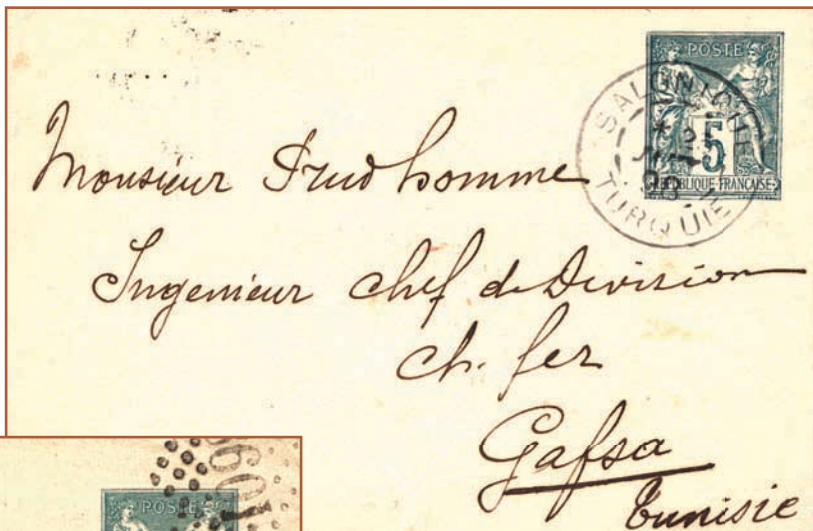 POSTE
5
RÉPUBLIQUE FRANÇAISE
SALONIQUE
TURQUIE
Monsieur Prudhomme
Ingenieur chef de Division
ch. fer
Gafsa
Tunisie
POSTE